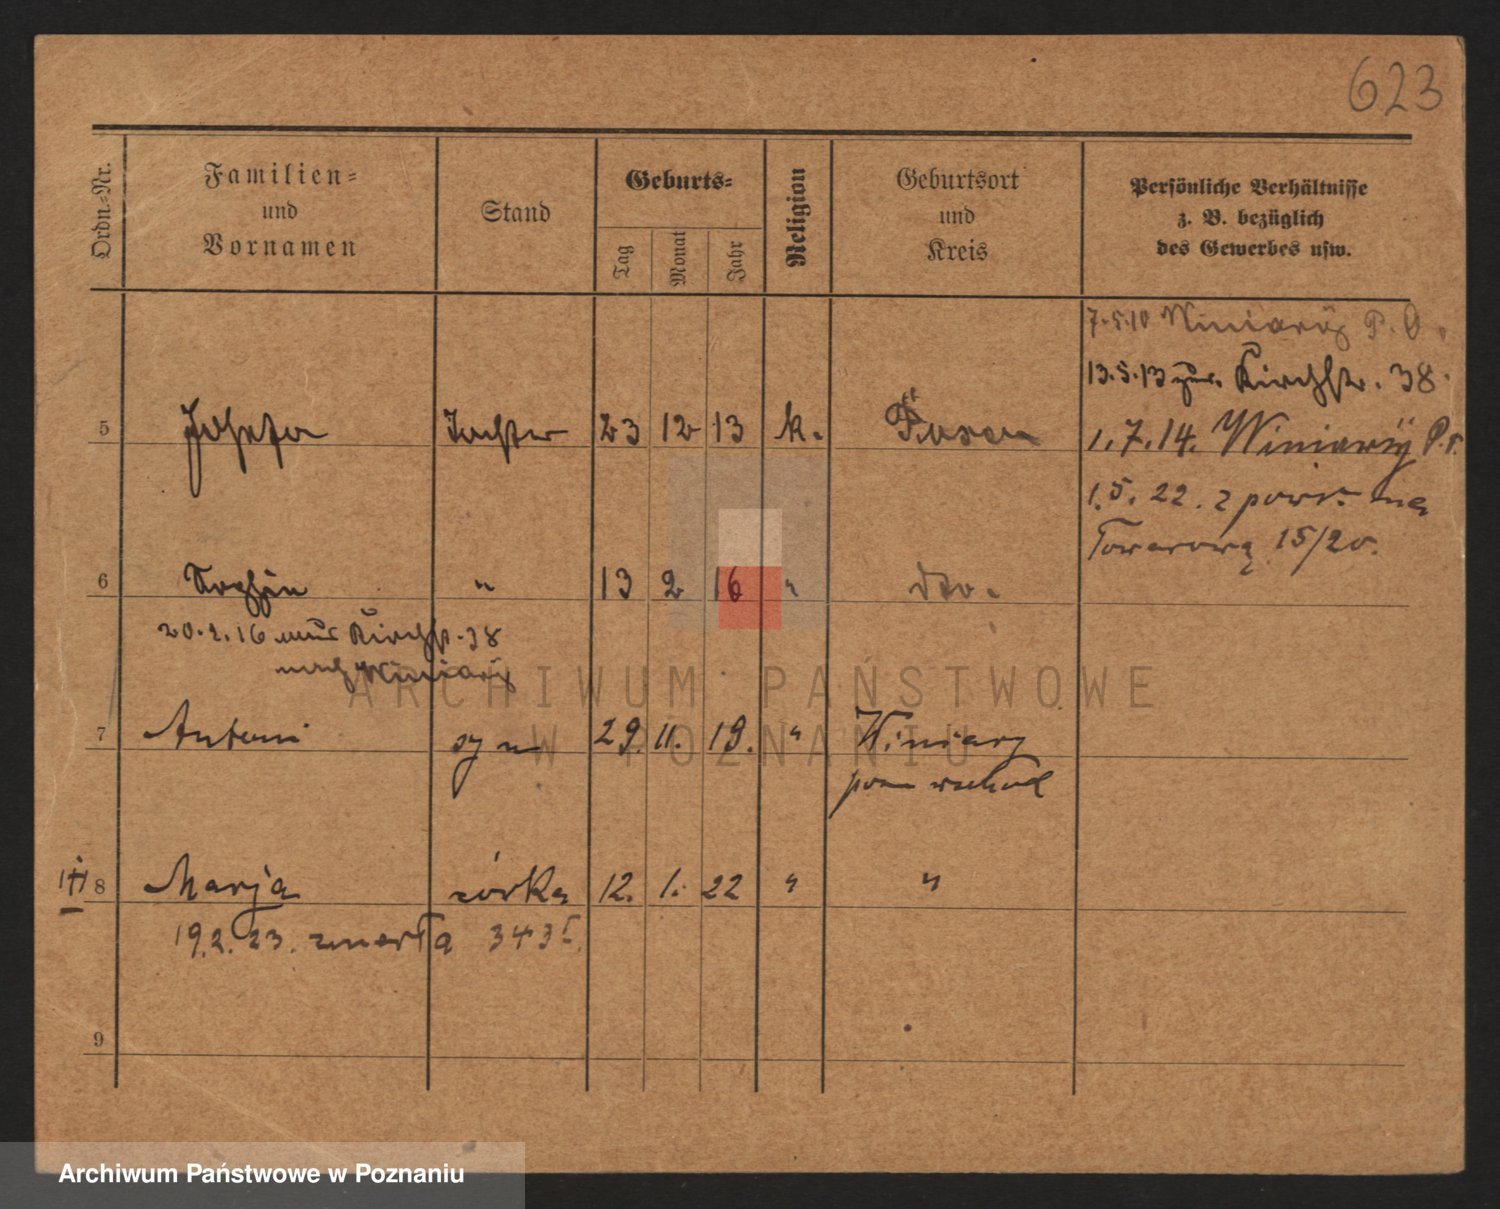 623
Ordn.-Nr.
Familien-
und
Vornamen
Stand
Geburts-
Tag
Monat
Jahr
Religion
Geburtsort
und
Kreis
Persönliche Verhältnisse
z. B. bezüglich
des Gewerbes usw.
7.5.10 Winiary P. O.
13.5.13 Kirchstr. 38.
5 Josefa Tochter 23 12 13 k. Posen
1.7.14. Winiary P.
1.5.22. z powr. na
Towarową 15/20.
6 " 13 2 16 " dto.
20.2.16 Kirchst. 38
nach Winiary
7 Antoni syn 29. 11. 19. " Winiary
pow wschod
8 Marja córka 12. 1. 22 " "
19.2.23. zmarła
9
ARCHIWUM PAŃSTWOWE
W POZNANIU
Archiwum Państwowe w Poznaniu